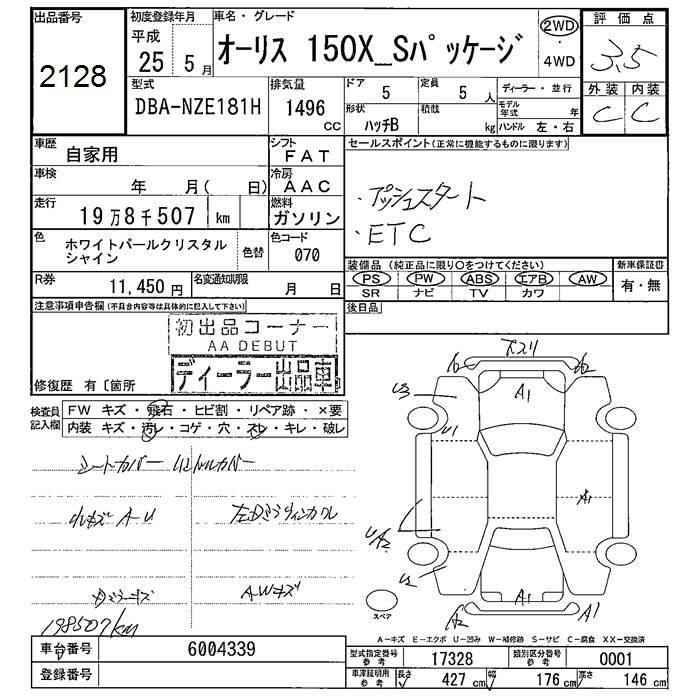 出品番号
2128
初度登録年月
平成
25 5 月
車名・グレード
オーリス 150X_Sパッケージ
2WD
4WD
評価点
3.5
外装 内装
C C
型式
DBA-NZE181H
排気量
1496
CC
ドア
5
定員
5 人
形状
ハッチB
積載
kg
ディーラー・並行
モデル年式 年
ハンドル 左・右
車歴
自家用
シフト
FAT
車検
年 月( 日)
冷房
AAC
走行
19万8千507 km
燃料
ガソリン
色
ホワイトパールクリスタル
シャイン
色替
色コード
070
R券
11,450 円
名変通知期限
月 日
セールスポイント(正常に機能するものに限ります)
・プッシュスタート
・ETC
装備品(純正品に限り○をつけてください)
PS PW ABS エアB AW
SR ナビ TV カワ
新車保証書
有・無
後日品
注意事項申告欄(不具合内容等は具体的に記入して下さい)
初出品コーナー
AA DEBUT
ディーラー出品車
修復歴 有〔箇所
検査員
記入欄
FW キズ・飛石・ヒビ割・リペア跡・×要
内装 キズ・汚レ・コゲ・穴・スレ・キレ・破レ
シートカバー ハンドルカバー
小キズ A-U
左Dミラーウィンカワレ
AWキズ
198507km
スズリ
A1
U3
U1
A1
U
A2
U2
A1
A2
A1
スペア
A-キズ E-エクボ U-凹み W-補修跡 S-サビ C-腐食 XX-交換済
車台番号
6004339
登録番号
型式指定番号
参考
17328
類別区分番号
参考
0001
車庫証明用
参考
長さ
427 cm
幅
176 cm
高さ
146 cm